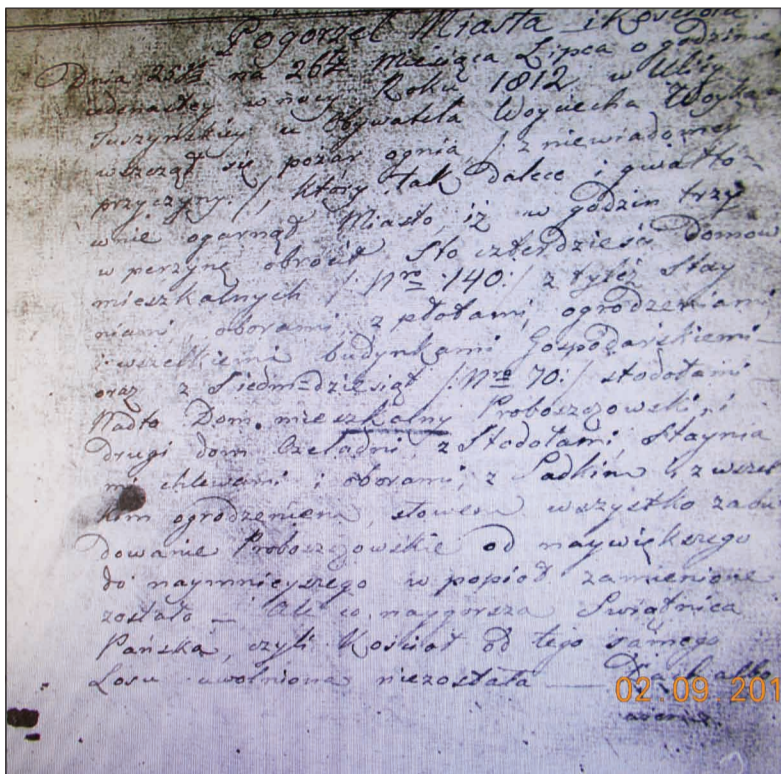 Pogorzel Miasta i Kościoła
Dnia 25go na 26ty Miesiąca Lipca o godzinie
iedenastey w nocy Roku 1812 w Ulicy
Tuszyńskiey u Obywatela Woyciecha
wszczął się pożar ognia /: z niewiadomey
przyczyny :/, który tak dalece i gwałto-
wnie ogarnął Miasto, iż w godzin trzy
w perzynę obrócił Sto czterdzieści domów
mieszkalnych /: Nro 140 :/ z tyleż Stay
niami, oborami, z płotami, ogrodzeniami,
i wszelkiemi budynkami Gospodarskiemi –
oraz z Siedm=dziesiąt /: Nro 70 :/ stodołami –
Nadto Dom mieszkalny Proboszczowski, i
drugi dom Czeladni, z Stodołami, Staynia
mi chlewami i oborami, z Sadkiem i z wszel
kim ogrodzeniem, słowem wszystko zabu
dowanie Proboszczowskie od naywiększego
do naymnieyszego w popiół zamienione
zostało – Ale co naygorsza Świątnica
Pańska, czyli Kościół od tego samego
Losu uwolniona niezostała —
02.09.201